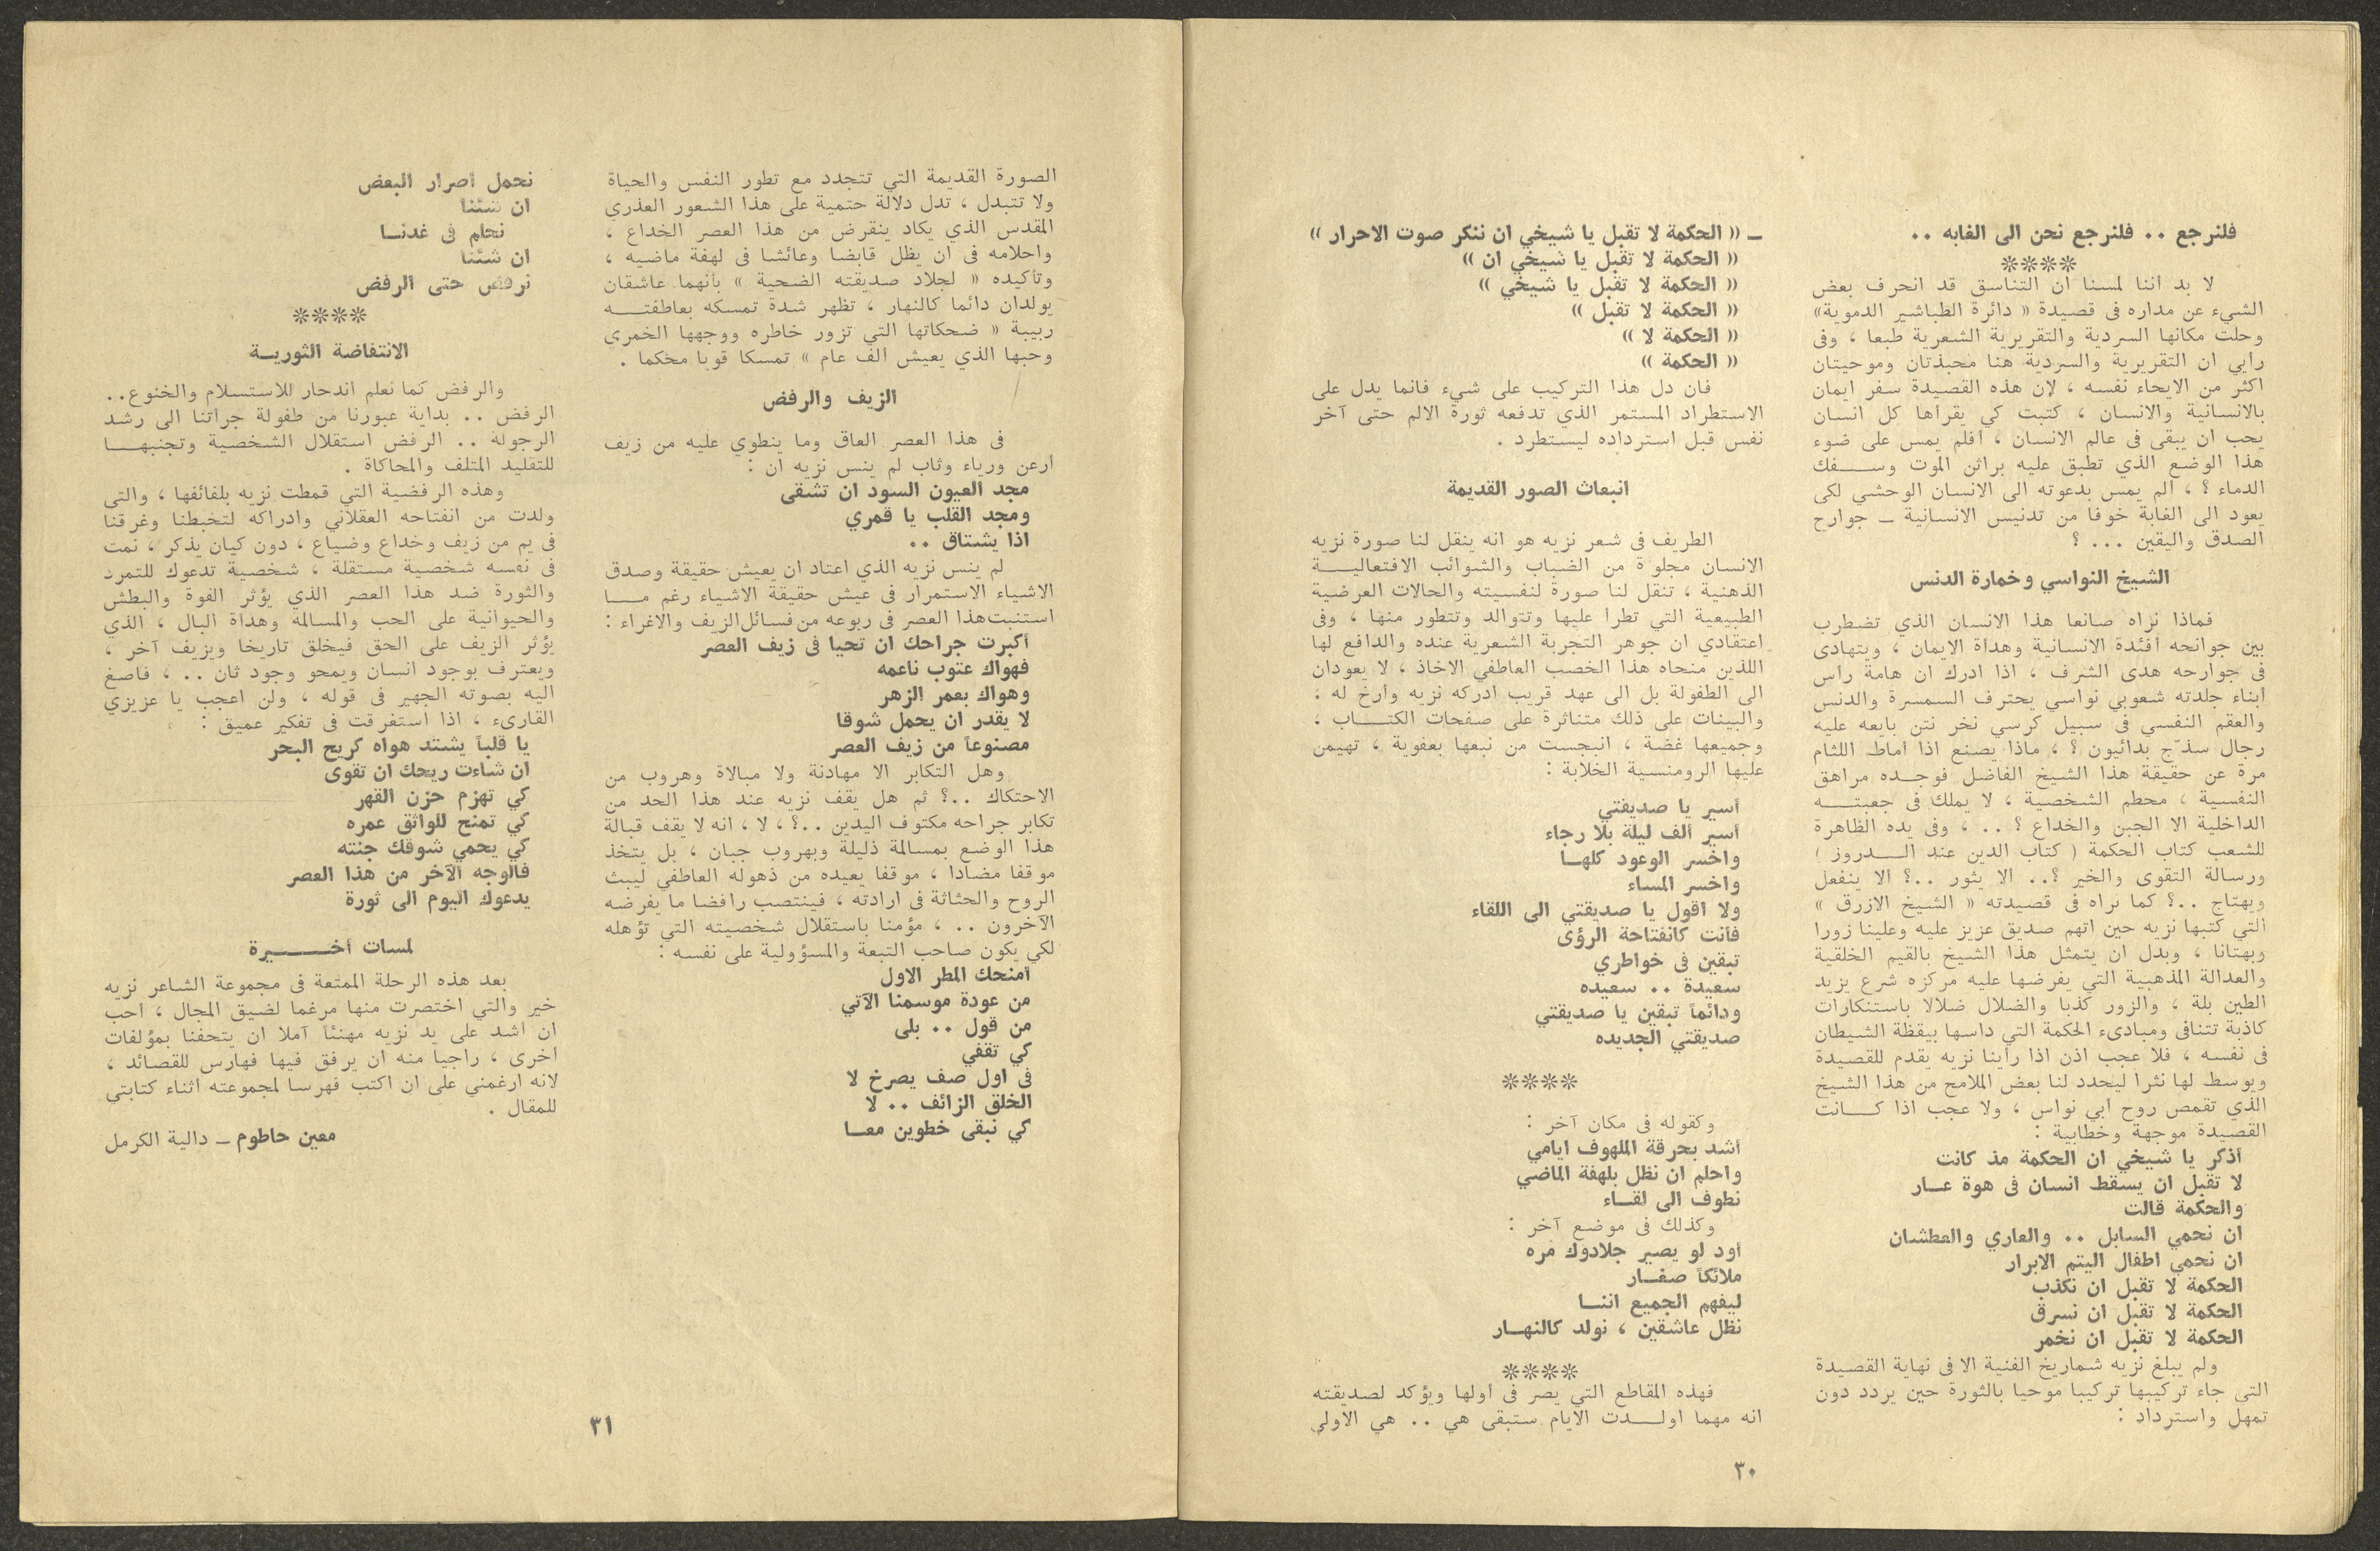 فلنرجع ٠٠ فلنرجع نحن الى الغابه ٠٠
****
لا بد اننا لمسنا ان التناسق قد انحرف بعض
الشيء عن مداره فى قصيدة « دائرة الطباشير الدموية»
وحلت مكانها السردية والتقريرية الشعرية طبعا ، وفى
رأيي ان التقريرية والسردية هنا محبذتان وموحيتان
اكثر من الايحاء نفسه ، لان هذه القصيدة سفر ايمان
بالانسانية والانسان ، كتبت كي يقرأها كل انسان
يحب ان يبقى فى عالم الانسان ، أفلم يمس على ضوء
هذا الوضع الذي تطبق عليه براثن الموت وسـفك
الدماء ؟ ، ألم يمس بدعوته الى الانسان الوحشي لكى
يعود الى الغابة خوفا من تدنيس الانسانية ــ جوارح
الصدق واليقين ... ؟
الشيخ النواسي وخمارة الدنس
فماذا نراه صانعا هذا الانسان الذي تضطرب
بين جوانحه أفئدة الانسانية وهدأة الايمان ، ويتهادى
فى جوارحه هدى الشرف ، اذا ادرك ان هامة رأس
أبناء جلدته شعوبي نواسي يحترف السمسرة والدنس
والعقم النفسي فى سبيل كرسي نخر نتن بايعه عليه
رجال سذّج بدائيون ؟ ، ماذا يصنع اذا اماط اللثام
مرة عن حقيقة هذا الشيخ الفاضل فوجـده مراهق
النفسية ، محطم الشخصية ، لا يملك فى جعبتـه
الداخلية الا الجبن والخداع ؟ .. ، وفى يده الظاهرة
للشعب كتاب الحكمة ( كتاب الدين عند الـدروز )
ورسالة التقوى والخير ؟.. الا يثور ..؟ الا ينفعل
ويهتاج ..؟ كما نراه فى قصيدته « الشيخ الازرق »
التي كتبها نزيه حين اتهم صديق عزيز عليه وعلينا زورا
وبهتانا ، وبدل ان يتمثل هذا الشيخ بالقيم الخلقية
والعدالة المذهبية التي يفرضها عليه مركزه شرع يزيد
الطين بلة ، والزور كذبا والضلال ضلالا باستنكارات
كاذبة تتنافى ومبادىء الحكمة التي داسها بيقظة الشيطان
فى نفسه ، فلا عجب اذن اذا رأينا نزيه يقدم للقصيدة
ويوسط لها نثرا ليحدد لنا بعض الملامح من هذا الشيخ
الذي تقمص روح أبي نواس ، ولا عجب اذا كـانت
القصيدة موجهة وخطابية :
أذكر يا شيخي ان الحكمة مذ كانت
لا تقبل ان يسقط انسان فى هوة عـار
والحكمة قالت
ان نحمي السابل ٠٠ والعاري والعطشان
ان نحمي اطفال اليتم الابرار
الحكمة لا تقبل ان نكذب
الحكمة لا تقبل ان نسرق
الحكمة لا تقبل ان نخمر
ولم يبلغ نزيه شماريخ الفنية الا فى نهاية القصيدة
التى جاء تركيبها تركيبا موحيا بالثورة حين يردد دون
تمهل واسترداد :
ــ « الحكمة لا تقبل يا شيخي ان ننكر صوت الاحرار »
« الحكمة لا تقبل يا شيخي ان »
« الحكمة لا تقبل يا شيخي »
« الحكمة لا تقبل »
« الحكمة لا »
« الحكمة »
فان دل هذا التركيب على شيء فانما يدل على
الاستطراد المستمر الذي تدفعه ثورة الالم حتى آخر
نفس قبل استرداده ليستطرد .
انبعاث الصور القديمة
الطريف فى شعر نزيه هو انه ينقل لنا صورة نزيه
الانسان مجلوة من الضباب والشوائب الافتعاليـة
الذهنية ، تنقل لنا صورة لنفسيته والحالات العرضية
الطبيعية التي تطرأ عليها وتتوالد وتتطور منها ، وفى
اعتقادي ان جوهر التجربة الشعرية عنده والدافع لها
اللذين منحاه هذا الخصب العاطفي الاخاذ ، لا يعودان
الى الطفولة بل الى عهد قريب أدركه نزيه وأرخ له ،
والبينات على ذلك متناثرة على صفحات الكتـاب ،
وجميعها غضة ، انبجست من نبعها بعفوية ، تهيمن
عليها الرومنسية الخلابة :
أسير يا صديقتي
أسير ألف ليلة بلا رجاء
واخسر الوعود كلهـا
واخسر المساء
ولا اقول يا صديقتي الى اللقاء
فأنت كانفتاحة الرؤى
تبقين فى خواطري
سعيدة ٠٠ سعيده
ودائماً تبقين يا صديقتي
صديقتي الجديده
****
وكقوله فى مكان آخر :
أشد بحرقة الملهوف ايامي
واحلم ان نظل بلهفة الماضي
نطوف الى لقـاء
وكذلك فى موضع آخر :
أود لو يصير جلادوك مره
ملائكاً صغـار
ليفهم الجميع اننـا
نظل عاشقين ، نولد كالنهـار
****
فهذه المقاطع التي يصر فى اولها ويؤكد لصديقته
انه مهما اولـدت الايام ستبقى هي .. هي الاولى
٣٠
الصورة القديمة التي تتجدد مع تطور النفس والحياة
ولا تتبدل ، تدل دلالة حتمية على هذا الشعور العذري
المقدس الذي يكاد ينقرض من هذا العصر الخداع ،
واحلامه فى ان يظل قابضا وعائشا فى لهفة ماضيه ،
وتأكيده « لجلاد صديقته الضحية » بأنهما عاشقان
يولدان دائما كالنهار ، تظهر شدة تمسكه بعاطفتـه
ربيبة « ضحكاتها التي تزور خاطره ووجهها الخمري
وحبها الذي يعيش الف عام » تمسكا قويا محكما .
الزيف والرفض
فى هذا العصر العاق وما ينطوي عليه من زيف
أرعن ورياء وثاب لم ينس نزيه ان :
مجد العيون السود ان تشقى
ومجد القلب يا قمري
اذا يشتاق ٠٠
لم ينس نزيه الذي اعتاد ان يعيش حقيقة وصدق
الاشياء الاستمرار فى عيش حقيقة الاشياء رغم مـا
استنبت هذا العصر فى ربوعه من فسائل الزيف والاغراء :
أكبرت جراحك ان تحيا فى زيف العصر
فهواك عتوب ناعمه
وهواك بعمر الزهر
لا يقدر ان يحمل شوقا
مصنوعاً من زيف العصر
وهل التكابر الا مهادنة ولا مبالاة وهروب من
الاحتكاك ..؟ ثم هل يقف نزيه عند هذا الحد من
تكابر جراحه مكتوف اليدين ..؟ ، لا ، انه لا يقف قبالة
هذا الوضع بمسالمة ذليلة وبهروب جبان ، بل يتخذ
موقفا مضادا ، موقفا يعيده من ذهوله العاطفي ليبث
الروح والحثاثة فى ارادته ، فينتصب رافضا ما يفرضه
الآخرون .. ، مؤمنا باستقلال شخصيته التي تؤهله
لكي يكون صاحب التبعة والمسؤولية على نفسه :
أمنحك المطر الاول
من عودة موسمنا الآتي
من قول ٠٠ بلى
كي تقفي
فى اول صف يصرخ لا
الخلق الزائف ٠٠ لا
كي نبقى خطوين معـا
نحمل اصرار البعض
ان شئنا
نحلم فى غدنـا
ان شئنا
نرفض حتى الرفض
****
الانتفاضة الثوريـة
والرفض كما نعلم اندحار للاستسلام والخنوع..
الرفض .. بداية عبورنا من طفولة جرأتنا الى رشد
الرجولة .. الرفض استقلال الشخصية وتجنبهـا
للتقليد المتلف والمحاكاة .
وهذه الرفضية التي قمطت نزيه بلفائفها ، والتى
ولدت من انفتاحه العقلاني وادراكه لتخبطنا وغرقنا
فى يم من زيف وخداع وضياع ، دون كيان يذكر ، نمت
فى نفسه شخصية مستقلة ، شخصية تدعوك للتمرد
والثورة ضد هذا العصر الذي يؤثر القوة والبطش
والحيوانية على الحب والمسالمة وهدأة البال ، الذي
يؤثر الزيف على الحق فيخلق تاريخا ويزيف آخر ،
ويعترف بوجود انسان ويمحو وجود ثان .. ، فاصغ
اليه بصوته الجهير فى قوله ، ولن اعجب يا عزيزي
القارىء ، اذا استغرقت فى تفكير عميق :
يا قلباً يشتد هواه كريح البحر
ان شاءت ريحك ان تقوى
كي تهزم حزن القهر
كي تمنح للواثق عمره
كي يحمي شوقك جنته
فالوجه الآخر من هذا العصر
يدعوك اليوم الى ثورة
لمسات أخـيرة
بعد هذه الرحلة الممتعة فى مجموعة الشاعر نزيه
خير والتي اختصرت منها مرغما لضيق المجال ، احب
ان اشد على يد نزيه مهنئاً آملا ان يتحفنا بمؤلفات
أخرى ، راجيا منه ان يرفق فيها فهارس للقصائد ،
لانه ارغمني على ان اكتب فهرسا لمجموعته اثناء كتابتي
للمقال .
معين حاطوم ــ دالية الكرمل
٣١